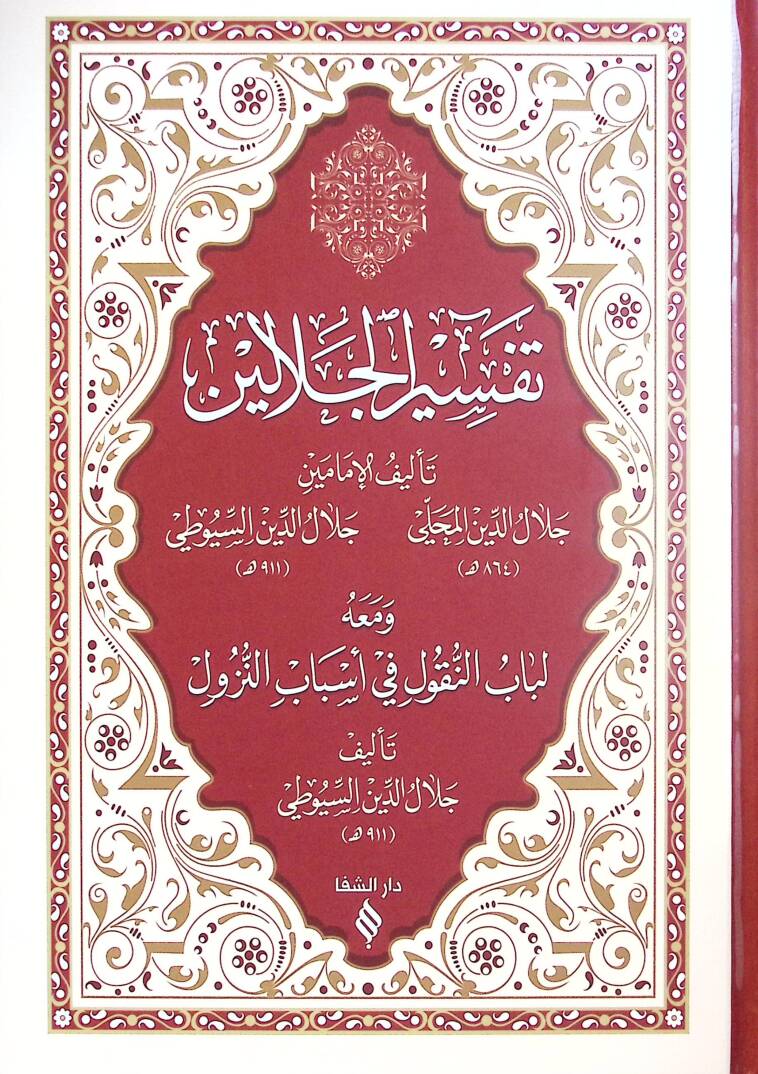 تفسير الجلالين
تَأليفُ الإمَامَينِ
جَلَالُ الدِّين المحَلّي جَلَالُ الدِّين السّيُوطي
(٨٦٤ هـ) (٩١١ هـ)
وَمَعَهُ
لبَابُ النُّقُول في أسْبَابِ النُّزُول
تَأليف
جَلَالُ الدِّين السِّيُوطي
(٩١١ هـ)
دار الشفا